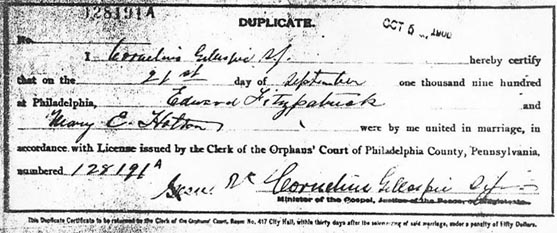 128191A
DUPLICATE.
OCT 5 1900
No.
I Cornelius Gillespie S.J. hereby certify
that on the 21st day of September one thousand nine hundred
at Philadelphia, Edward Fitzpatrick and
Mary E. were by me united in marriage, in
accordance with License issued by the Clerk of the Orphans' Court of Philadelphia County, Pennsylvania,
numbered 128191A
Cornelius Gillespie S.J.
Minister of the Gospel, Justice of the Peace, or Magistrate.
This Duplicate Certificate to be returned to the Clerk of the Orphans' Court, Room No. 417 City Hall, within thirty days after the solemnizing of said marriage, under a penalty of Fifty Dollars.